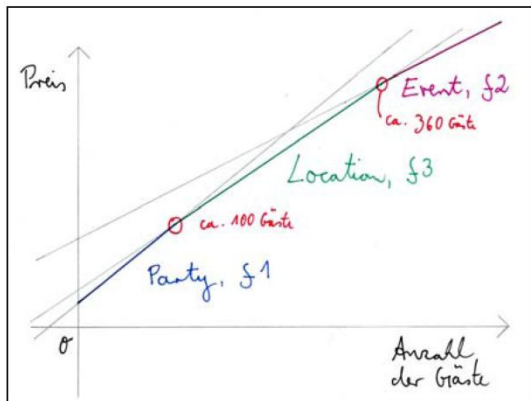 Preis
Event, f2
ca. 360 Gäste
Location, f3
ca. 100 Gäste
Party, f1
0
Anzahl
der Gäste